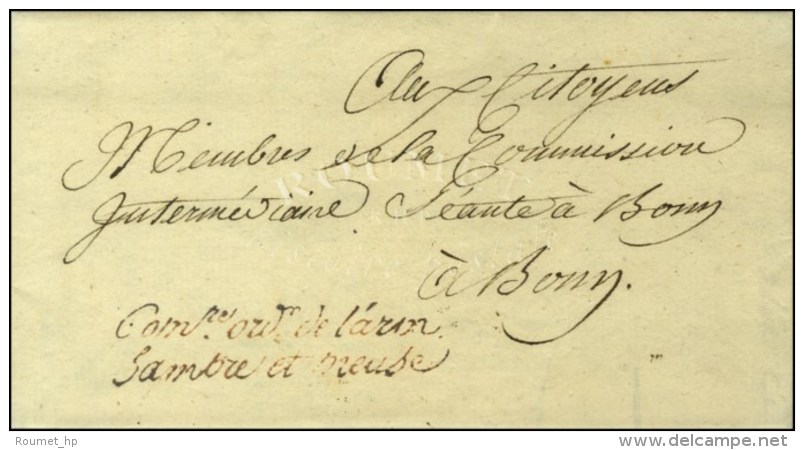 Aux Citoyens
Membres de la Commission
Intermédiaire Séante à Bonn
à Bonn.
Comre. ordr. de l'arm.
Sambre et meuse
ROUMET
Roumet_hp
www.delcampe.net